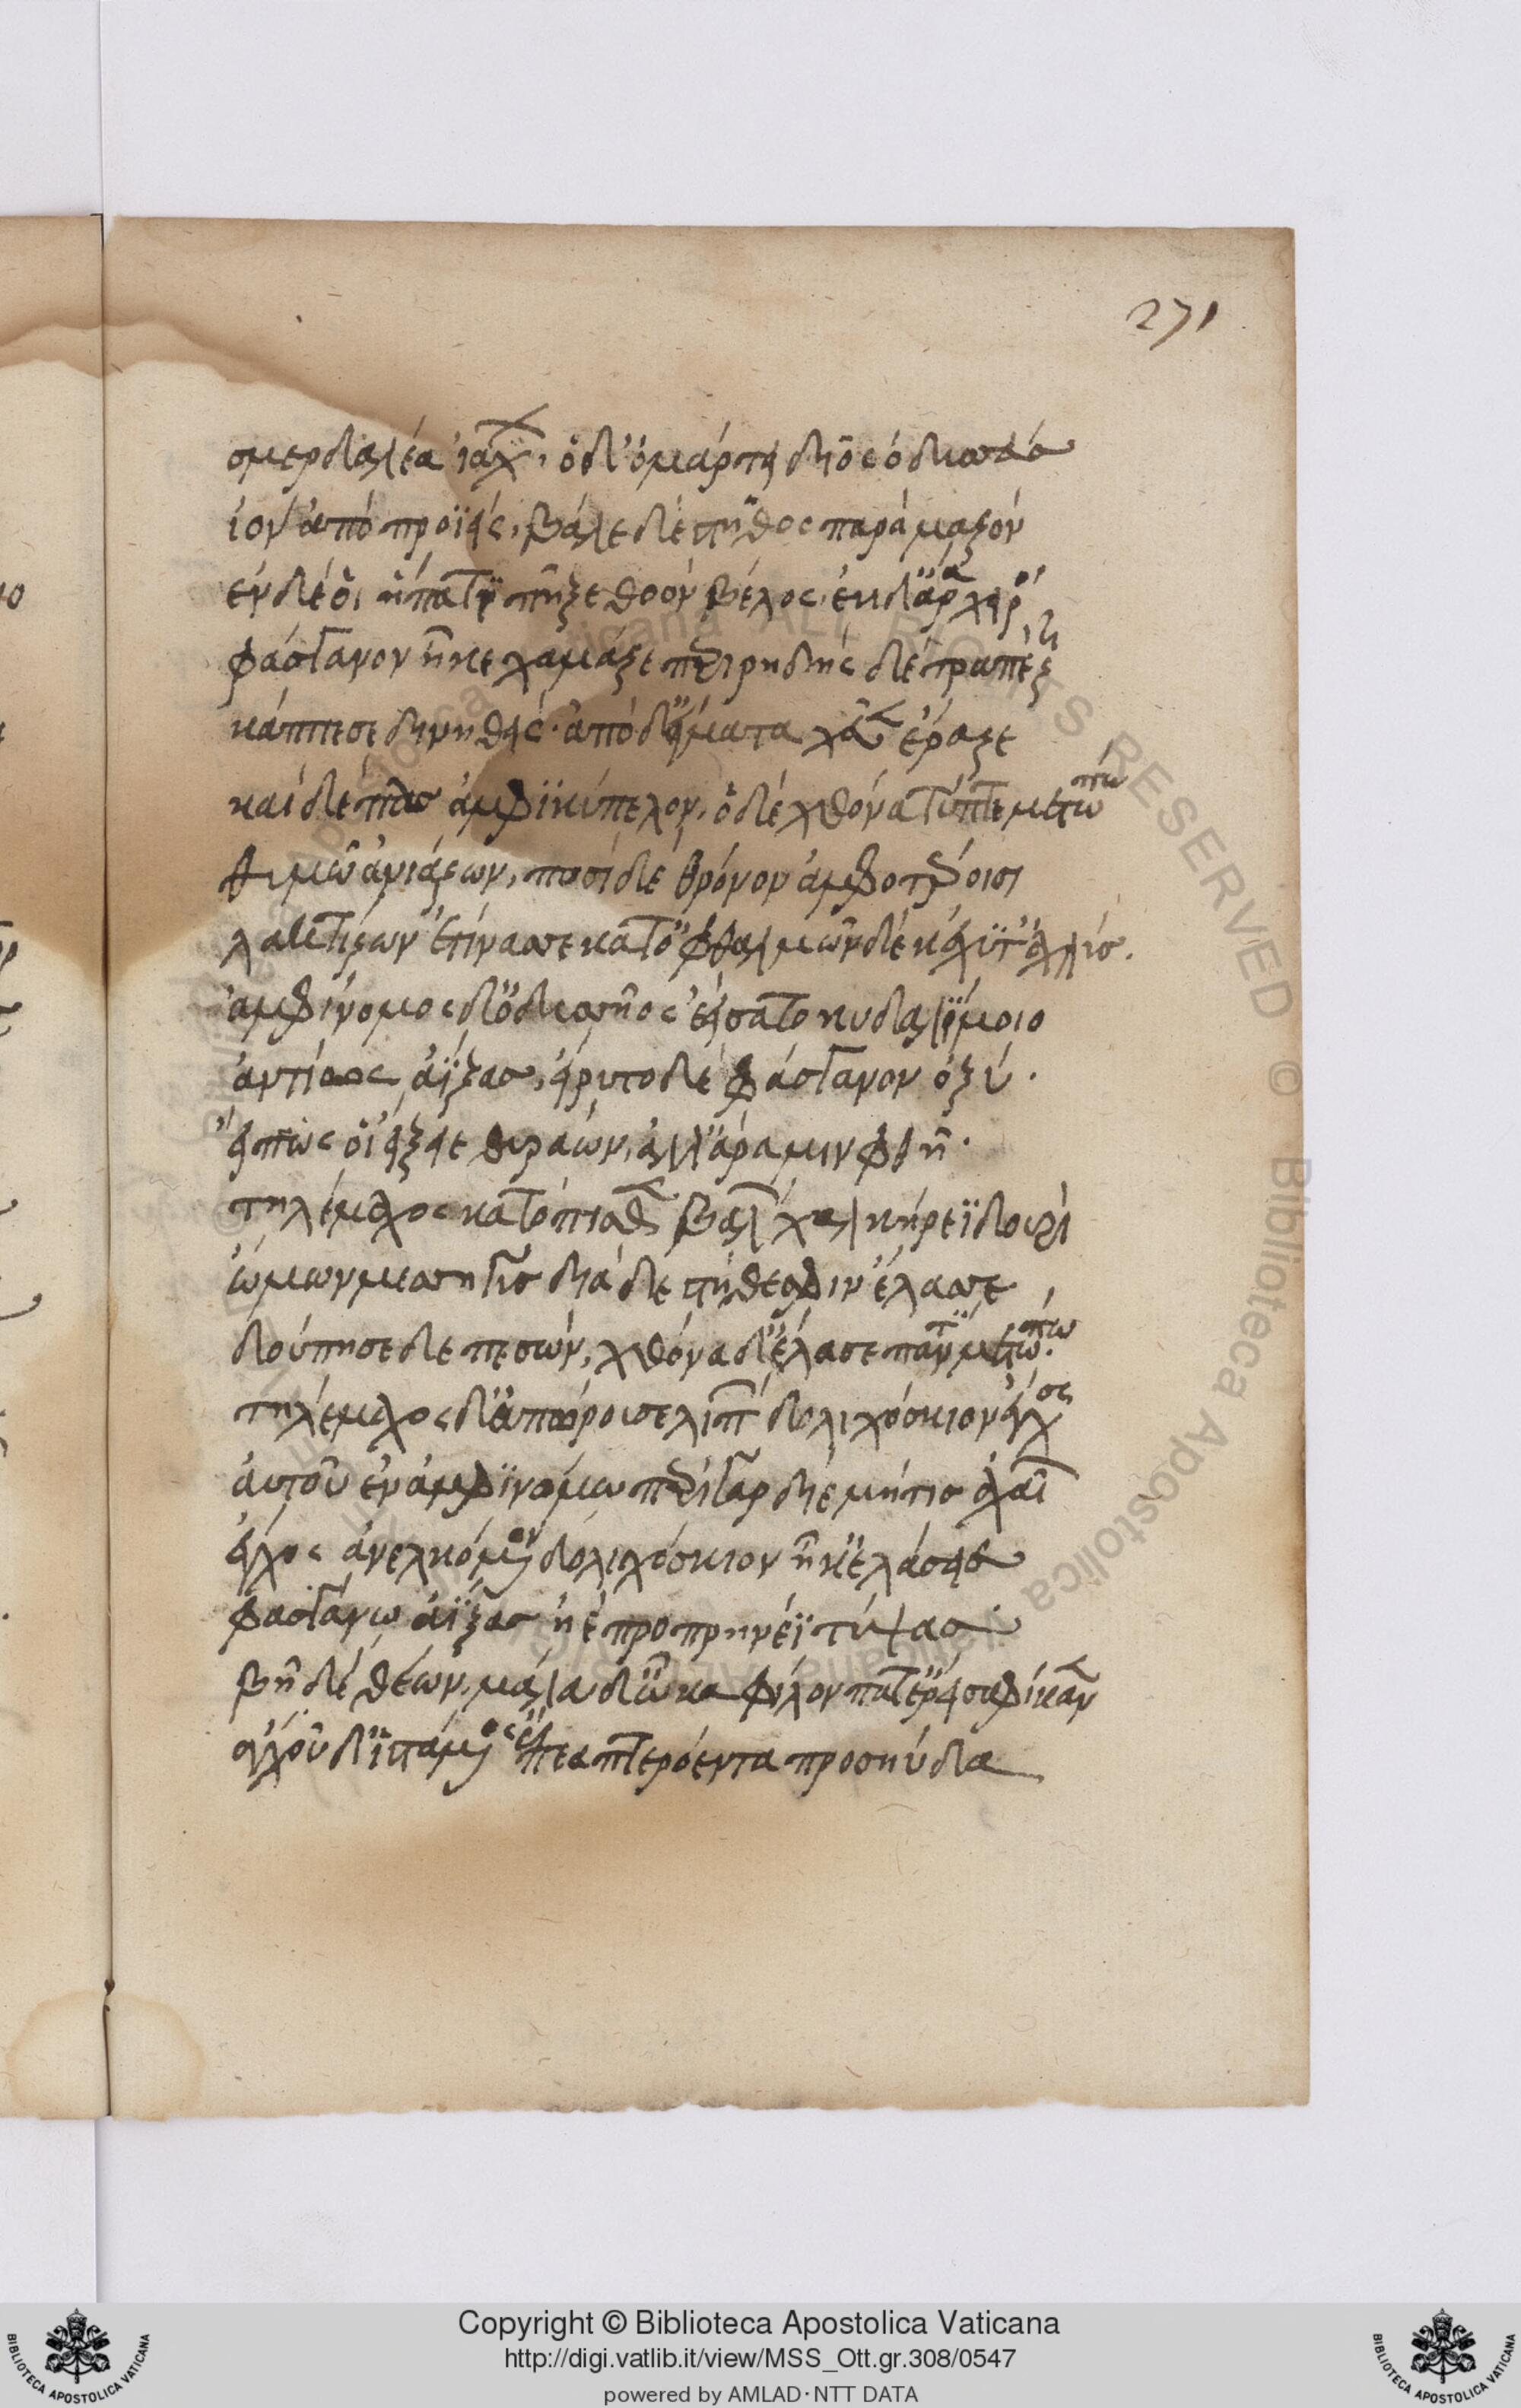 271
σμερδαλέα ἰάχων. ὁ δ' ὁμαρτῆ δῖος ὀδυσσεὺς
ἰὸν ἀποπροϊείς, βάλε δὲ στῆθος παρὰ μαζόν
ἐν δέ οἱ ἥπατι πῆξε θοὸν βέλος. ἐκ δ' ἄρα χειρὸς
φάσγανον ἧκε χαμᾶζε περιρηδὴς δὲ τραπέζῃ
κάππεσε δινηθείς. ἀπὸ δ' εἴδατα χεῦεν ἔραζε
καὶ δέπας ἀμφικύπελον, ὁ δὲ χθόνα τύπτε μετώπω
θυμῶ ἀνιάζων, ποσὶ δὲ θρόνον ἀμφοτέροισι
λακτίζων ἐτίνασσε κατ' ὀφθαλμῶν δὲ κέχυτ' ἀχλύς.
ἀμφίνομος δ' ὀδυσσῆος ἐείσατο κυδαλίμοιο
ἀντίος ἀΐξας, εἴρυτο δὲ φάσγανον ὀξύ.
εἴ πώς οἱ εἴξειε θυράων, ἀλλ' ἄρα μιν φθῆ.
τηλέμαχος κατόπισθε βαλὼν χαλκήρεϊ δουρὶ
ὤμων μεσσηγὺς διὰ δὲ στήθεσφιν ἔλασσε
δούπησε δὲ πεσών, χθόνα δ' ἔλασε παντὶ μετώπω.
τηλέμαχος δ' ἀπόρουσε λιπὼν δολιχόσκιον ἔγχος
αὐτοῦ ἐν ἀμφινόμω περὶ γὰρ δίε μήτις ἀχαιῶν
ἔγχος ἀνελκόμενον δολιχόσκιον ἢ ἐλάσειε
φασγάνω ἀΐξας ἠὲ προπρηνέϊ τύψας
βῆ δὲ θέων, μάλα δ' ὦκα φίλον πατέρ' εἰσαφίκανεν
ἀγχοῦ δ' ἱστάμενος ἔπεα πτερόεντα προσηύδα
Copyright © Biblioteca Apostolica Vaticana
http://digi.vatlib.it/view/MSS_Ott.gr.308/0547
powered by AMLAD·NTT DATA